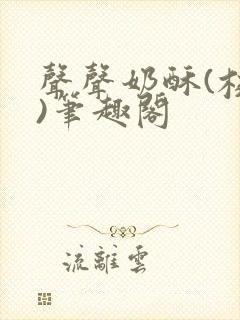 聲聲奶酥(校
)筆趣閣
流離雲